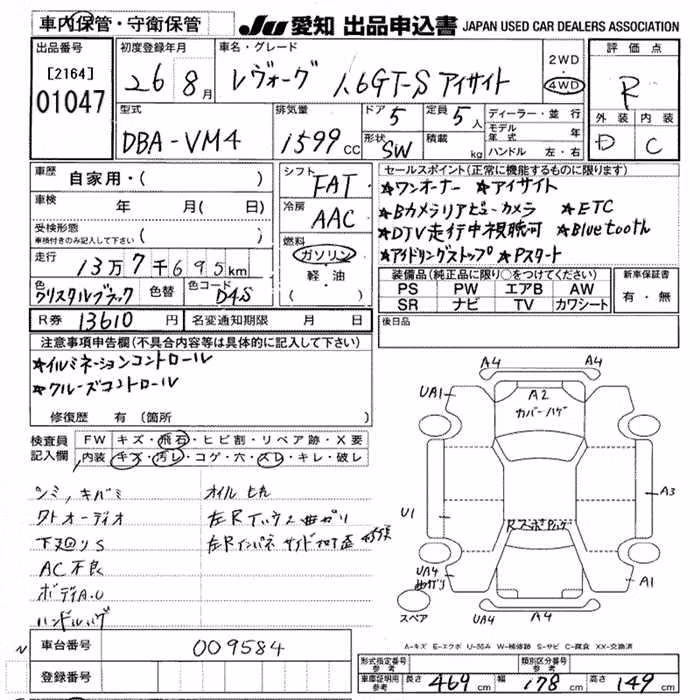 車内保管・守衛保管 JU 愛知 出品申込書 JAPAN USED CAR DEALERS ASSOCIATION
出品番号 初度登録年月 車名・グレード 2WD 評価点
[2164] 26 8月 レヴォーグ 1.6GT-S アイサイト 4WD R
01047
型式 排気量 ドア 定員 ディーラー・並行 外装 内装
DBA-VM4 1599cc 5 5人 モデル年式 年 D C
形状 SW 積載 kg ハンドル 左・右
車歴 自家用・( ) シフト FAT セールスポイント(正常に機能するものに限ります)
★ワンオーナー ★アイサイト
車検 年 月( 日) 冷房 AAC ★Bカメラリアビューカメラ ★ETC
受検形態 ★DTV走行中視聴可 ★Bluetooth
車検付きのみ記入して下さい ( ) 燃料 ガソリン ★アイドリングストップ ★Pスタート
走行 13万7千695km 軽・油 ( ) 装備品(純正品に限り○をつけてください) 新車保証書
PS PW エアB AW 有・無
色 クリスタルブラック 色替 色コード D4S SR ナビ TV カワシート
R券 13610円 名変通知期限 月 日 後日品
注意事項申告欄(不具合内容等は具体的に記入して下さい)
★イルミネーションコントロール
★クルーズコントロール
修復歴 有 (箇所
検査員記入欄 FW キズ・飛石・ヒビ割・リペア跡・X要
内装 キズ・汚レ・コゲ・穴・スレ・キレ・破レ
シミ,キバミ オイルモレ
外オーディオ 左Rインパネ
下廻りS
AC不良
ボディA.U
ハンドルハゲ
A4 A4
UA1 A2
カバーハゲ
U1 A3
UA4 A1
スペア UA4 A4
A-キズ E-エクボ U-凹み W-補修跡 S-サビ C-腐食 XX-交換済
車台番号 009584
登録番号
形式指定番号 参考 類別区分番号 参考
車庫証明用 参考 長さ 469cm 幅 178cm 高さ 149cm